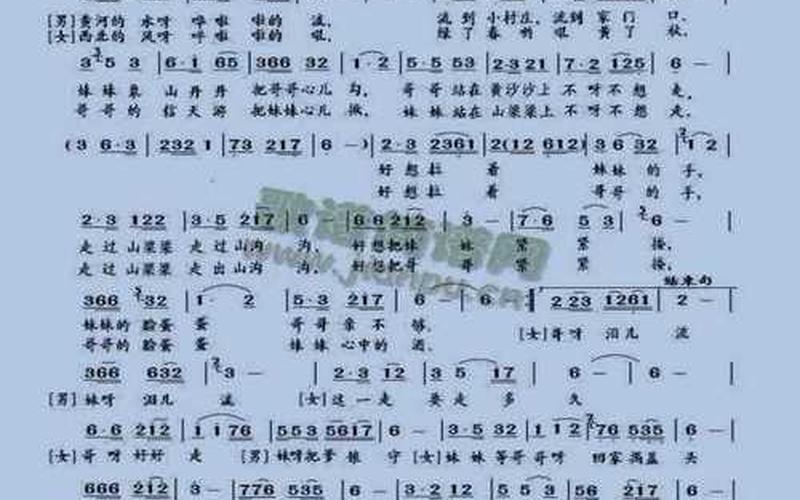 [男]黄河的水呀哗啦啦的流, 流到小村庄,流到家门口.
[女]西北的风呀哗啦啦的吼, 绿了春哟吼黄了秋,
3 5 3 | 6·1 65 | 366 32 | 1·2 | 5·5 53 | 2·321 | 7·2 125 | 6 — |
妹妹象山丹丹把哥哥心儿勾, 哥哥站在黄沙沙上不呀不想走,
哥哥的信天游把妹妹心儿揪, 妹妹站在山梁梁上不呀不想走,
(3 6·3 | 2321 | 73 217 | 6 —) | 2·3 2361 | 2(12 612) | 3 6 32 | 1 2 |
好想拉着 妹妹的手,
好想拉着 哥哥的手,
2·3 122 | 3·5 217 | 6 — | 6 6 212 | 3 — | 7·6 5 3 | 6 — |
走过山梁梁走过山沟沟, 好想把妹妹紧紧搂,
走过山梁梁走出山沟沟, 好想把哥哥紧紧搂,
结束句
366 32 | 1· 2 | 5·3 217 | 6 — | 6 — :| 2 23 1261 | 2 — |
妹妹的脸蛋蛋 哥哥亲不够,
哥哥的脸蛋蛋 妹妹心中的酒,
[女]哥呀泪儿流
366 632 | 3 — | 2·3 12 | 3 5 17 | 6 — | 6 — |
[男]妹呀泪儿流 [女]这一走要走多久
6·6 212 | 1 1 76 | 553 5617 | 6 — | 3·5 32 | 1 1 2 | 76 535 | 6 — |
[女]哥呀好好走 [男]妹呀把爹娘守 [女]妹妹等哥哥呀回家掀盖头
666 212 | 3 — | 776 535 | 6 — | 3·2 12 | 5 — | 56 217 | 6 — |